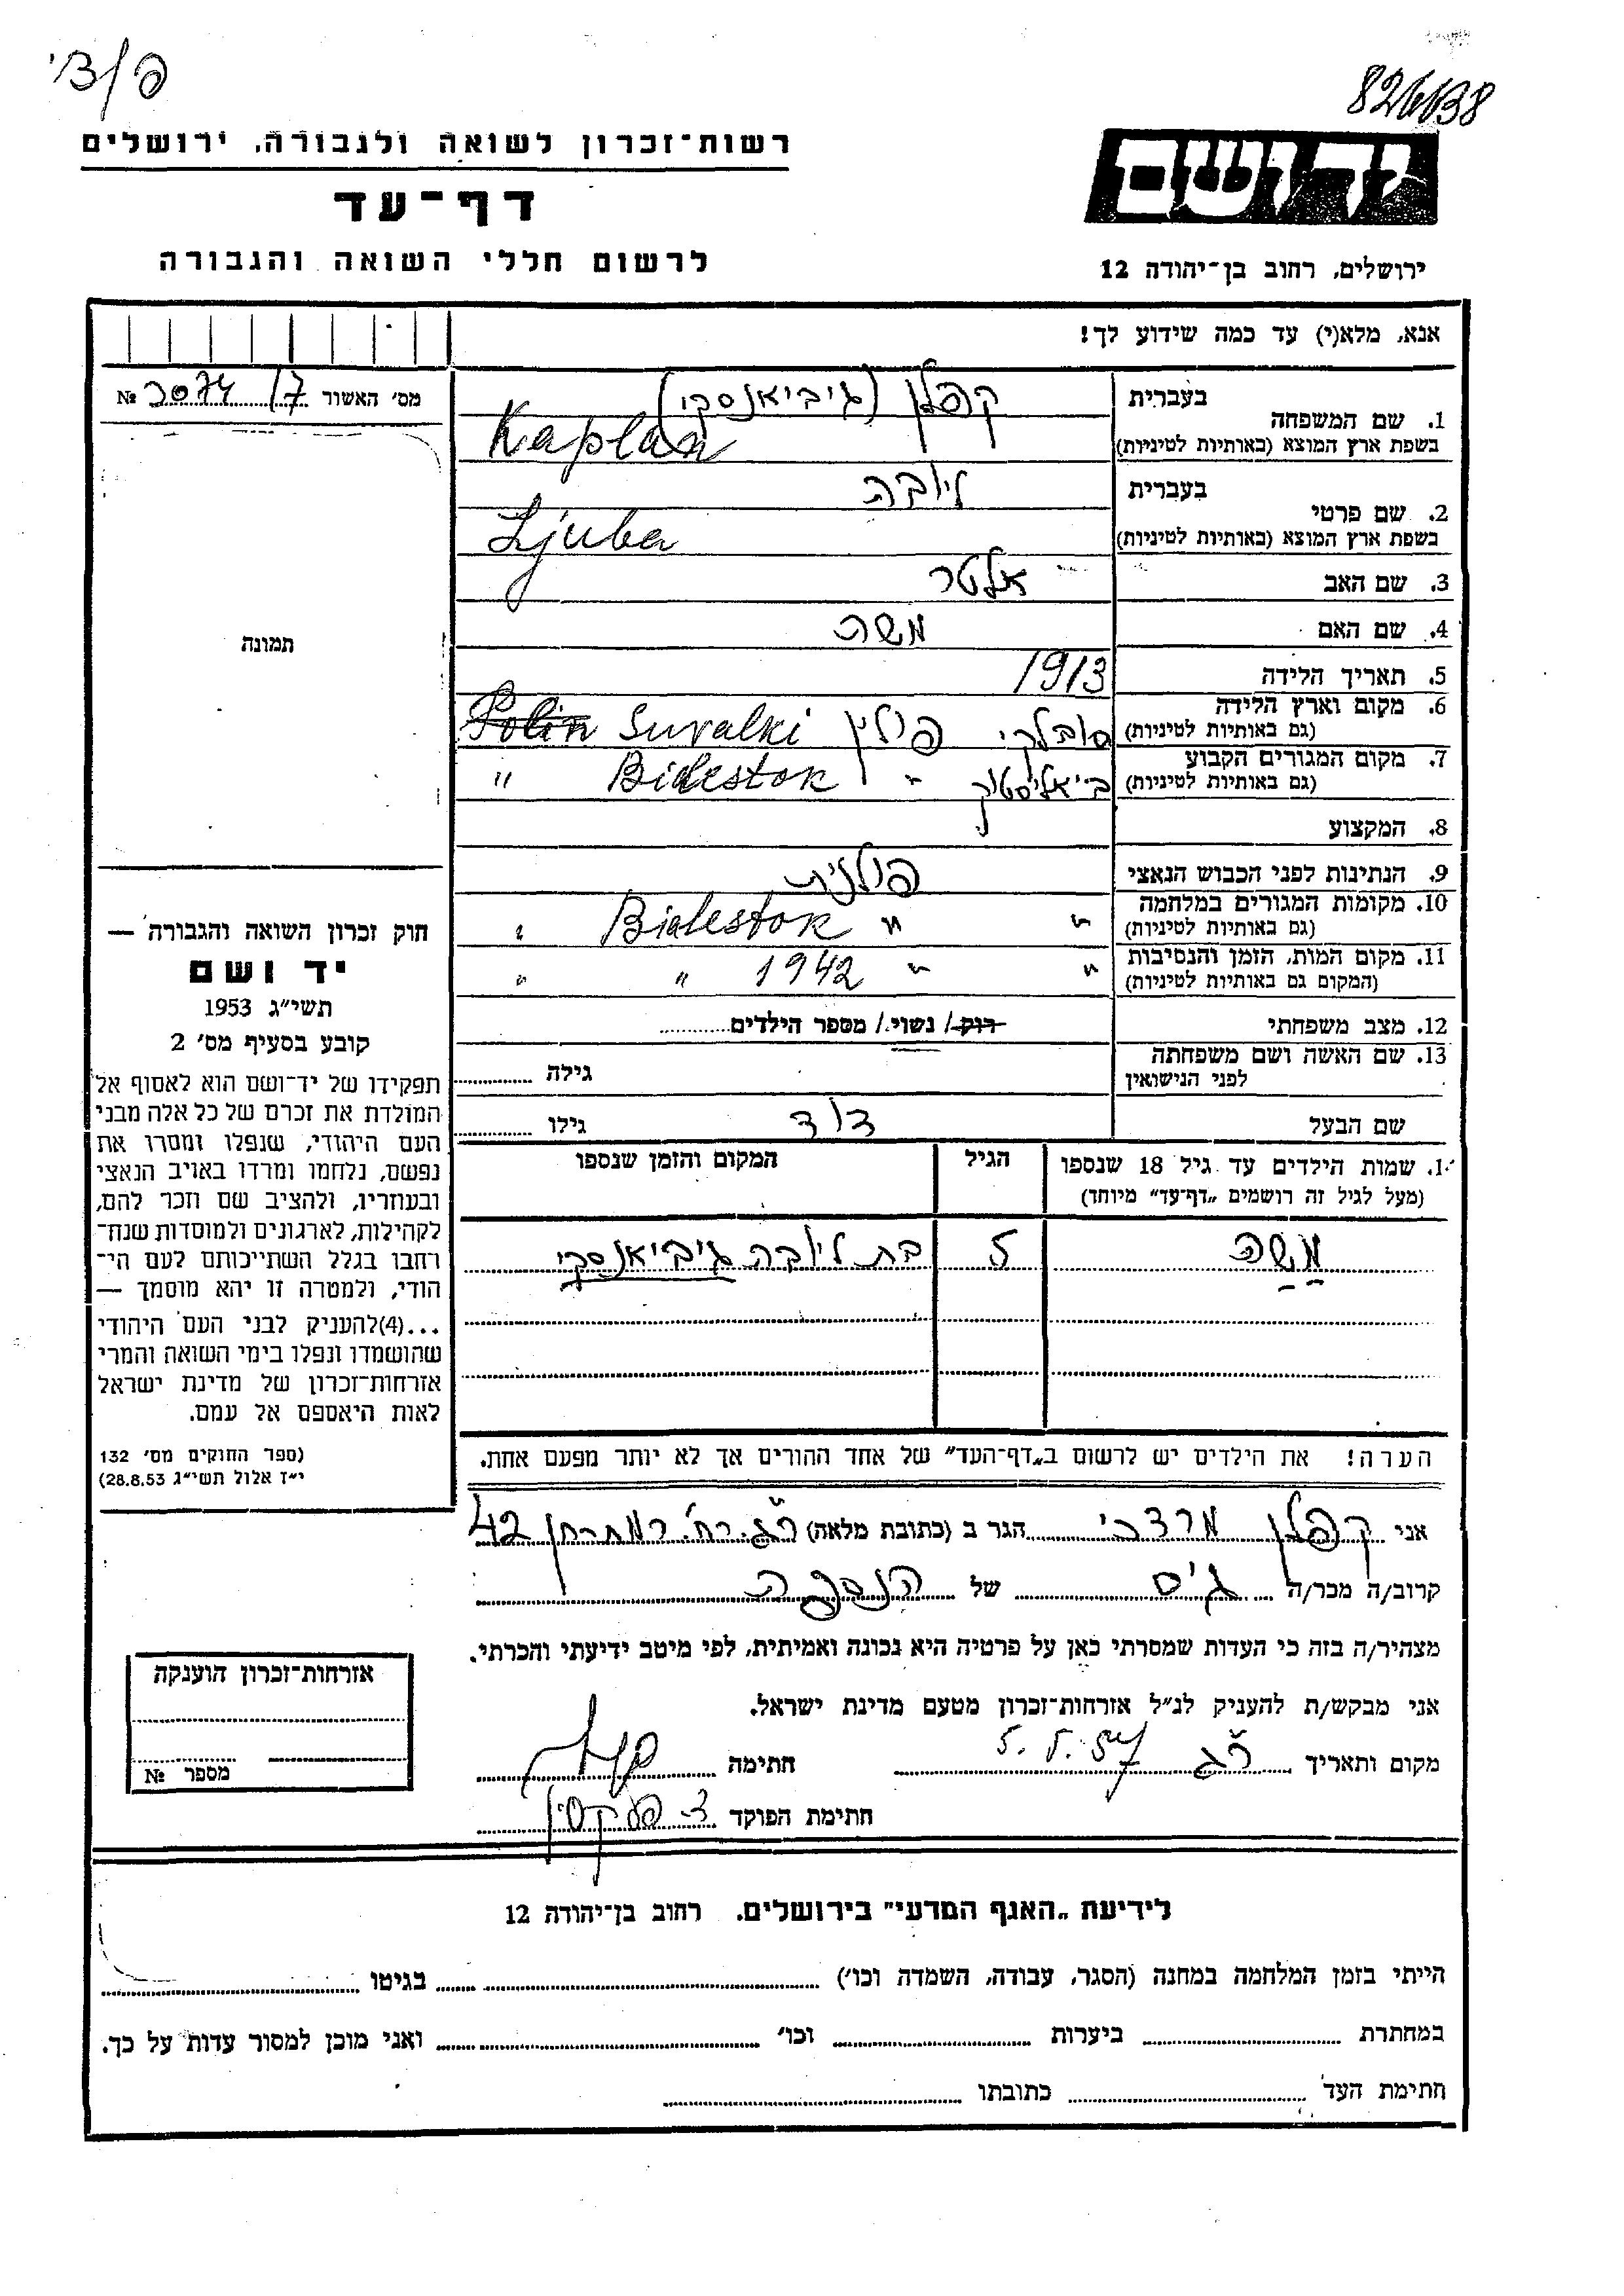 פ/צי
826138
רשות־זכרון לשואה ולגבורה, ירושלים
דף־עד
לרשום חללי השואה והגבורה
יד ושם
ירושלים, רחוב בן־יהודה 12
אנא, מלא(י) עד כמה שידוע לך!
מס׳ האשור 7/ 2074 №
תמונה
1. שם המשפחה בעברית קפלן (גיביאנסקי)
בשפת ארץ המוצא (באותיות לטיניות) Kaplan
2. שם פרטי בעברית ליובה
בשפת ארץ המוצא (באותיות לטיניות) Ljuba
3. שם האב אלטר
4. שם האם משה
5. תאריך הלידה 1913
6. מקום וארץ הלידה
(גם באותיות לטיניות) סובלקי פולין Suvalki Polin
7. מקום המגורים הקבוע
(גם באותיות לטיניות) ביאליסטוק " Bialestok "
8. המקצוע
9. הנתינות לפני הכבוש הנאצי פולנית
10. מקומות המגורים במלחמה
(גם באותיות לטיניות) " " Bialestok "
11. מקום המות, הזמן והנסיבות
(המקום גם באותיות לטיניות) " " 1942 " "
12. מצב משפחתי רוק/ נשוי/ מספר הילדים
13. שם האשה ושם משפחתה
לפני הנישואין גילה
שם הבעל דוד גילו
חוק זכרון השואה והגבורה —
יד ושם
תשי״ג 1953
קובע בסעיף מס׳ 2
תפקידו של יד־ושם הוא לאסוף אל
המולדת את זכרם של כל אלה מבני
העם היהודי, שנפלו ומסרו את
נפשם, נלחמו ומרדו באויב הנאצי
ובעוזריו, ולהציב שם וזכר להם,
לקהילות, לארגונים ולמוסדות שנח־
רחבו בגלל השתייכותם לעם הי־
הודי, ולמטרה זו יהא מוסמך —
...(4)להעניק לבני העם היהודי
שהושמדו ונפלו בימי השואה והמרי
אזרחות־זכרון של מדינת ישראל
לאות היאספם אל עמם.
(ספר החוקים מס׳ 132
י״ז אלול תשי״ג 28.8.53)
1. שמות הילדים עד גיל 18 שנספו הגיל המקום והזמן שנספו
(מעל לגיל זה רושמים „דף־עד״ מיוחד)
משה 5 בת ליובה גיביאנסקי
הערה! את הילדים יש לרשום ב„דף־העד״ של אחד ההורים אך לא יותר מפעם אחת.
אני קפלן מרדכי הגר ב (כתובת מלאה) ר״ג. רח׳ 42
קרוב/ה מכר/ה גיס של הנספה
מצהיר/ה בזה כי העדות שמסרתי כאן על פרטיה היא נכונה ואמיתית, לפי מיטב ידיעתי והכרתי.
אני מבקש/ת להעניק לנ״ל אזרחות־זכרון מטעם מדינת ישראל.
מקום ותאריך ר״ג 5.5.57 חתימה
חתימת הפוקד
אזרחות־זכרון הוענקה
מספר №
לידיעת „האגף המדעי״ בירושלים, רחוב בן־יהודה 12
הייתי בזמן המלחמה במחנה (הסגר, עבודה, השמדה וכו׳) בגיטו
במחתרת ביערות וכו׳ ואני מוכן למסור עדות על כך.
חתימת העד כתובתו